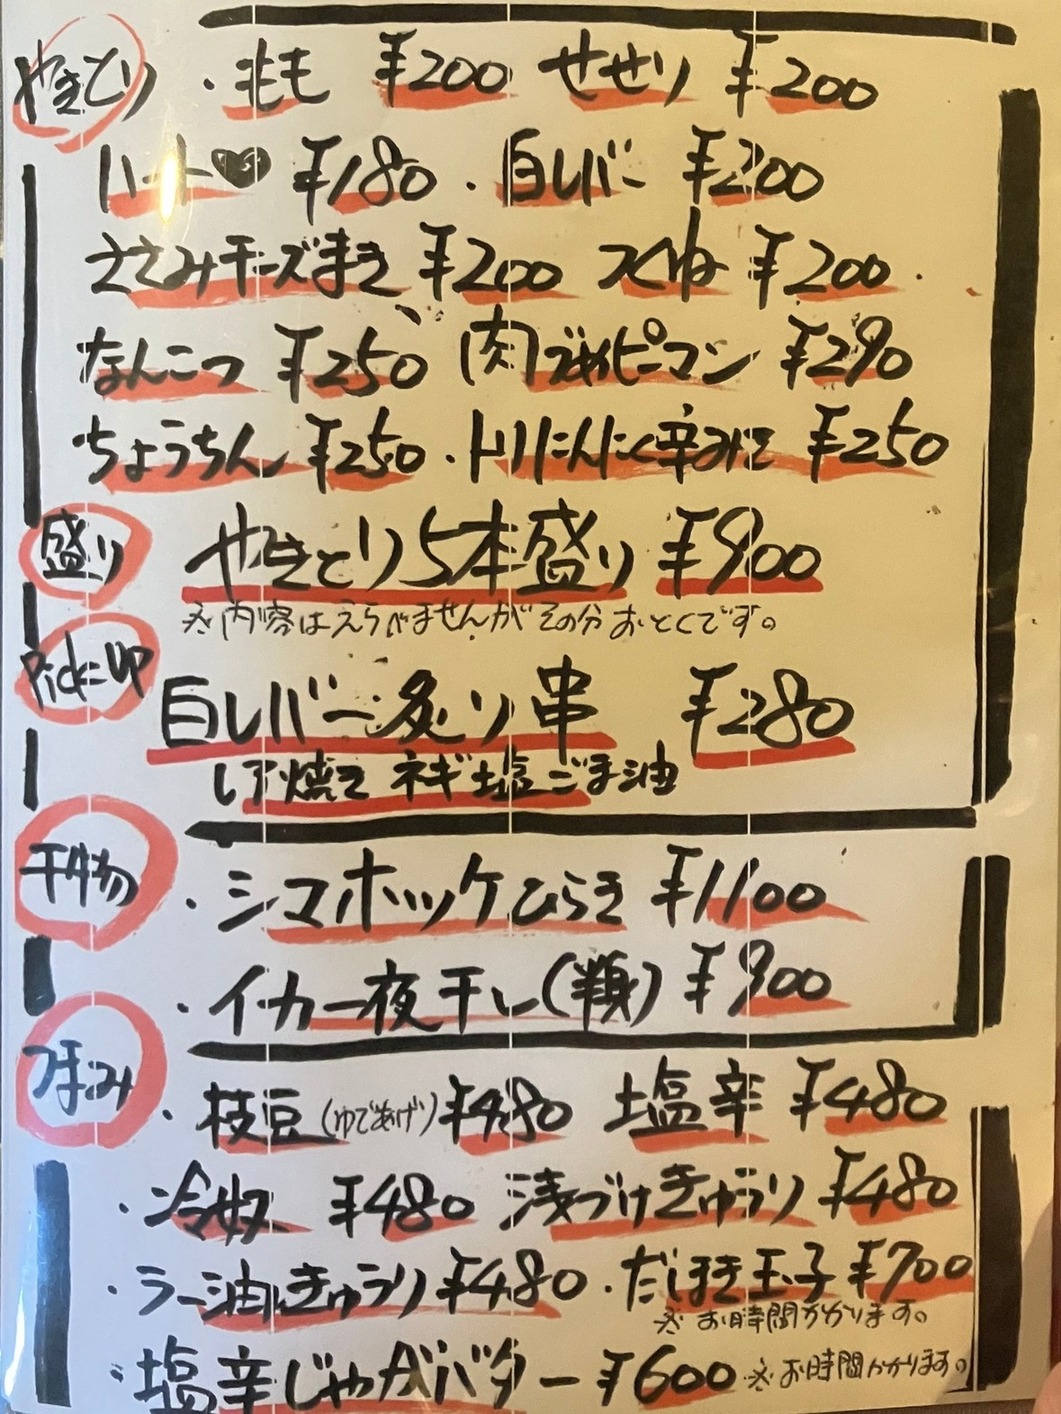 やきとり ・もも ¥200 せせり ¥200
ハート♥ ¥180・白レバー ¥200
ささみチーズまき ¥200 つくね ¥200・
なんこつ ¥250 肉づめピーマン ¥290
ちょうちん ¥250・トリにんにく辛みそ ¥250
盛り やきとり5本盛り ¥900
※内容はえらべませんがその分おとくです。
Pick UP
白レバー炙り串 ¥280
レア焼き ネギ塩ごま油
干物 ・シマホッケひらき ¥1100
・イカ一夜干し(半身) ¥900
つまみ ・枝豆(ゆであげ) ¥480 塩辛 ¥480
・冷奴 ¥480 浅づけきゅうり ¥480
・ラー油きゅうり ¥480・だしまき玉子 ¥700
※お時間かかります。
・塩辛じゃがバター ¥600 ※お時間かかります。